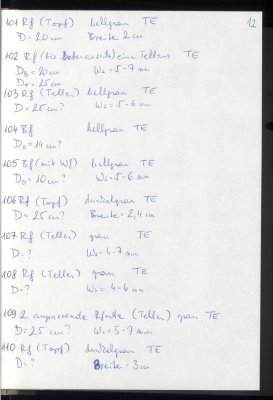 12
101 Rf (Topf) hellgrau TE
D = 20cm Breite 2cm
102 Rf (bis Bodenansatz) eines Tellers TE
Db = 20cm Ws = 5-7 mm
Dr = 25cm
103 Rf (Teller) hellgrau TE
D = 25cm? Ws = 5-6 mm
104 Bf hellgrau TE
Db = 14cm?
105 Bf (mit Wf) hellgrau TE
Db = 10cm? Ws = 5-6 mm
106 Rf (Topf) dunkelgrau TE
D = 25cm? Breite = 2,4 cm
107 Rf (Teller) grau TE
D = ? Ws = 4-7 mm
108 Rf (Teller) grau TE
D = ? Ws = 4-6 mm
109 2 anpassende Rfrste (Teller) grau TE
D = 25cm? Ws = 5-7 mm
110 Rf (Topf) dunkelgrau TE
D = ? Breite = 3cm